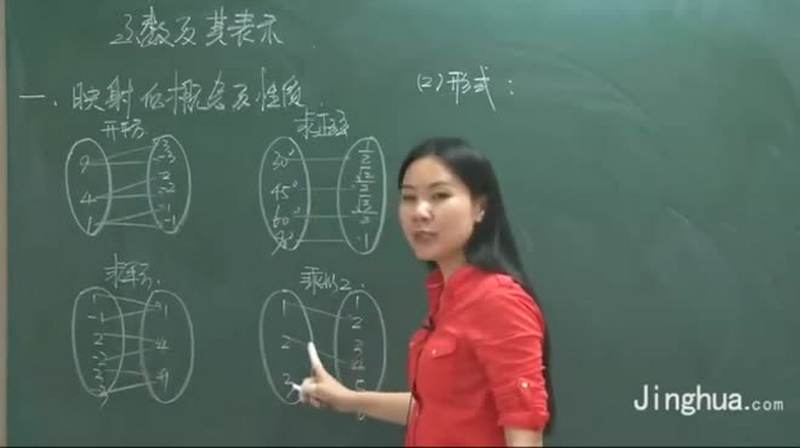 函数及其表示
一、映射的概念及性质
(2)形式:
开平方
9
4
1
3
-3
2
-2
1
-1
求正弦
30°
45°
60°
90°
1/2
√2/2
√3/2
1
求平方
1
-1
2
-2
3
-3
1
4
9
乘以2
1
2
3
1
2
3
4
5
6
Jinghua.com